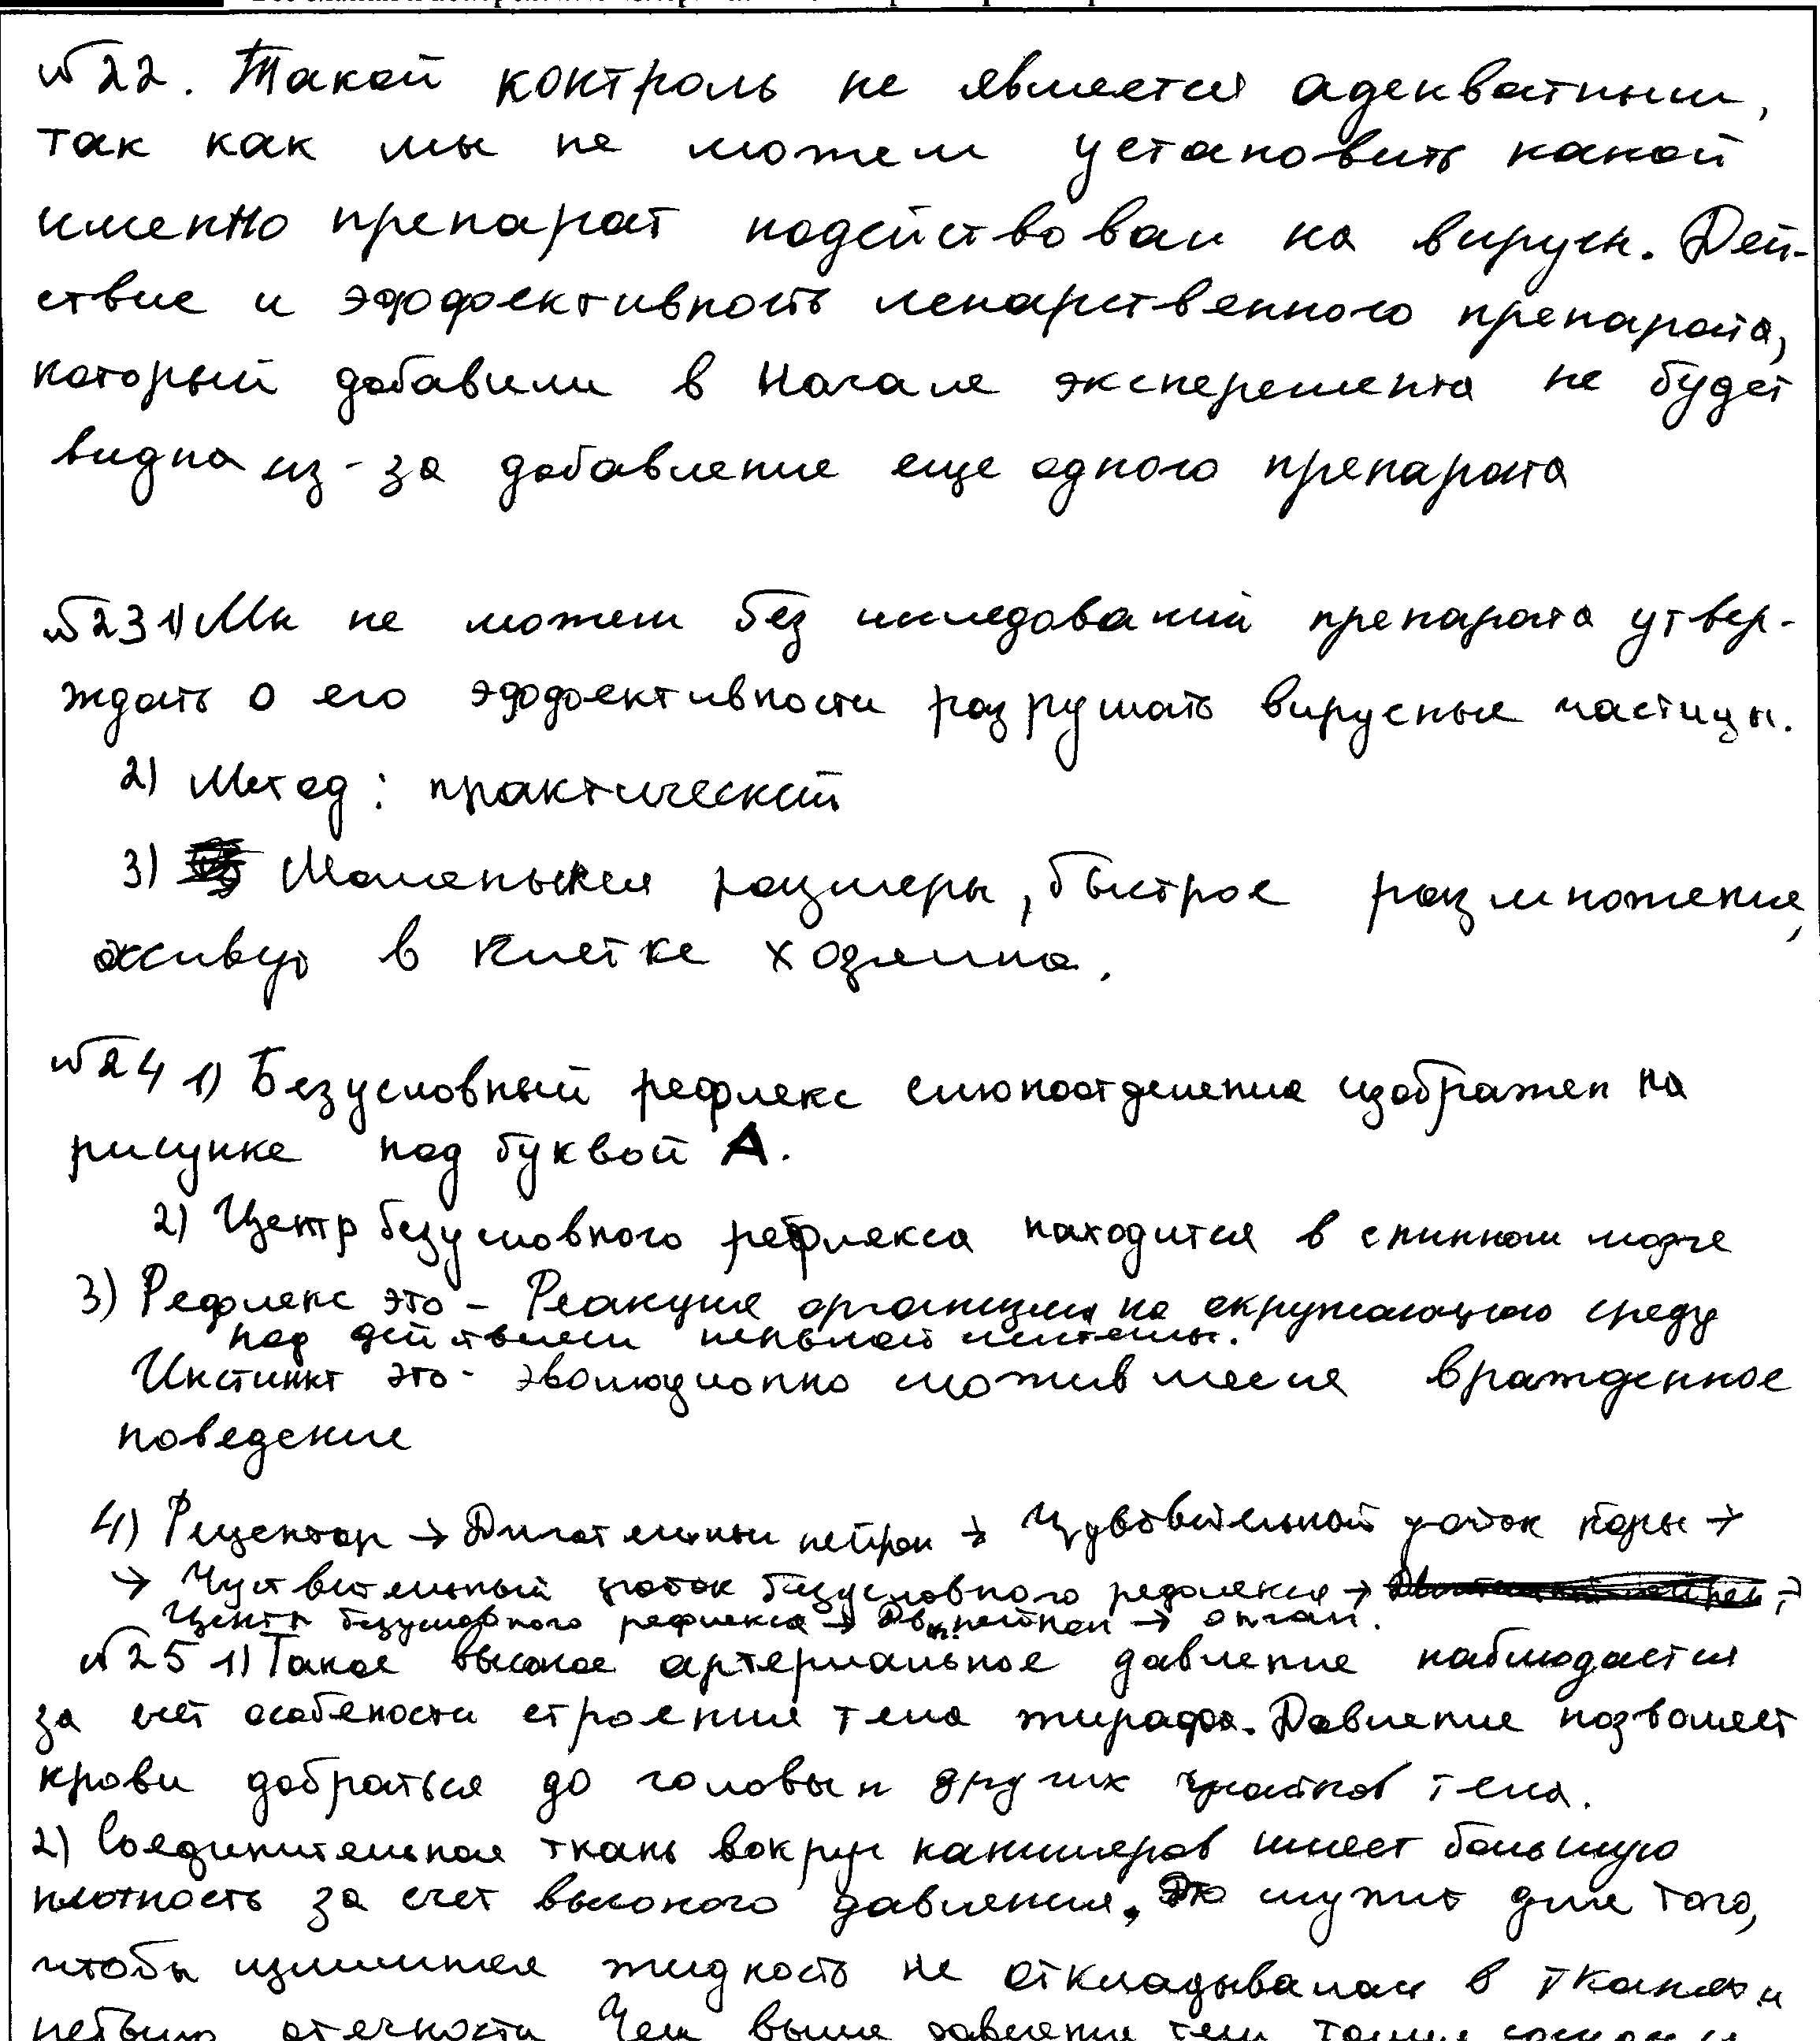 №22. Такой контроль не является адекватным,
так как мы не можем установить какой
именно препарат подействовал на вирусы. Дей-
ствие и эффективность лекарственного препарата,
который добавили в начале эксперемента не будет
видна из-за добавление еще одного препарата
№23 1) Мы не можем без исследований препарата утвер-
ждать о его эффективности разрушать вирусные частицы.
2) Метод: практический
3) Маленькия размеры, быстрое размножение,
живут в клетке хозяина.
№24 1) Безусловный рефлекс слюноотделения изображен на
рисунке под буквой А.
2) Центр безусловного рефлекса находится в спинном мозге
3) Рефлекс это - Реакция организма на окружающую среду
под действием нервной системы.
Инстинкт это - эволюционно сложившееся врожденное
поведение
4) Рецептор → Двигательный нейрон → Чувствительной участок коры →
→ Чувствительный участок безусловного рефлекса →
Центр безусловного рефлекса → Дв. нейрон → орган.
№25 1) Такое высокое артериальное давление наблюдается
за счет особености строения тела жирафа. Давление позволяет
крови добраться до головы и других участков тела.
2) Соединительная ткань вокруг капилляров имеет большую
плотность за счет высокого давления. Это служит для того,
чтобы излишняя жидкость не откладывалась в тканях и
отечности Чем выше давление тем